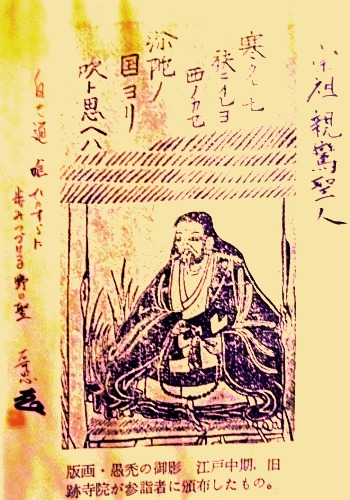 宗祖親鸞聖人
寒クトモ
袂ニイレヨ
西ノカセ
弥陀ノ
国ヨリ
吹ト思ヘハ
白き道 唯ひたすらに
歩みつづける 野の聖
版画・愚禿の御影　江戸中期、旧
跡寺院が参詣者に頒布したもの。